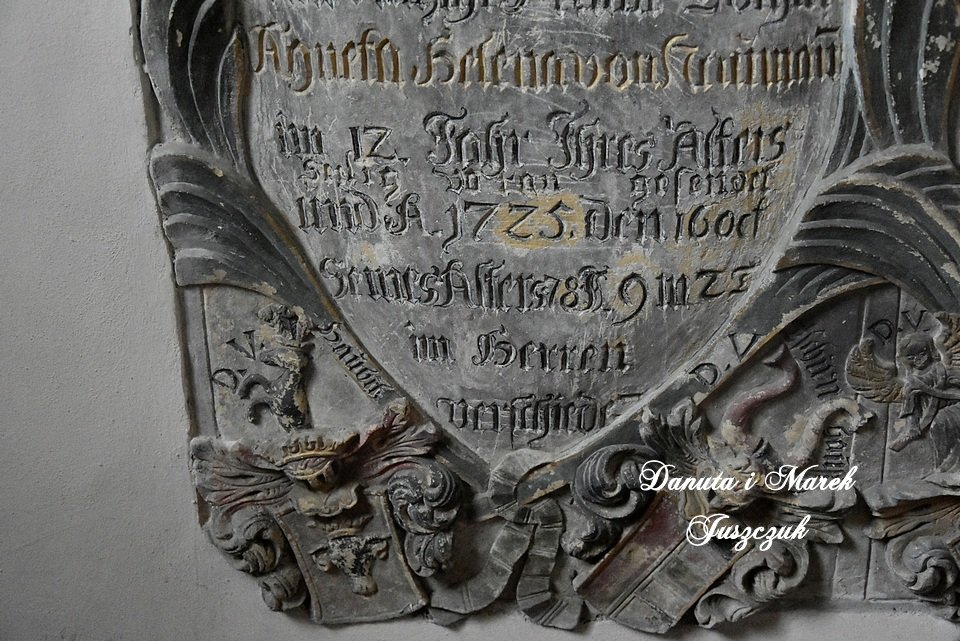 Agnesa Helena von Naüman̄
im 12. Jahr Ihres Alters
Selig gesendet
und A. 1725. den 16 oct
Seines Alters 78 J. 9 m 23
im Herren
verschieden
D. V.
D. V
D. V
Danuta i Marek
Juszczuk